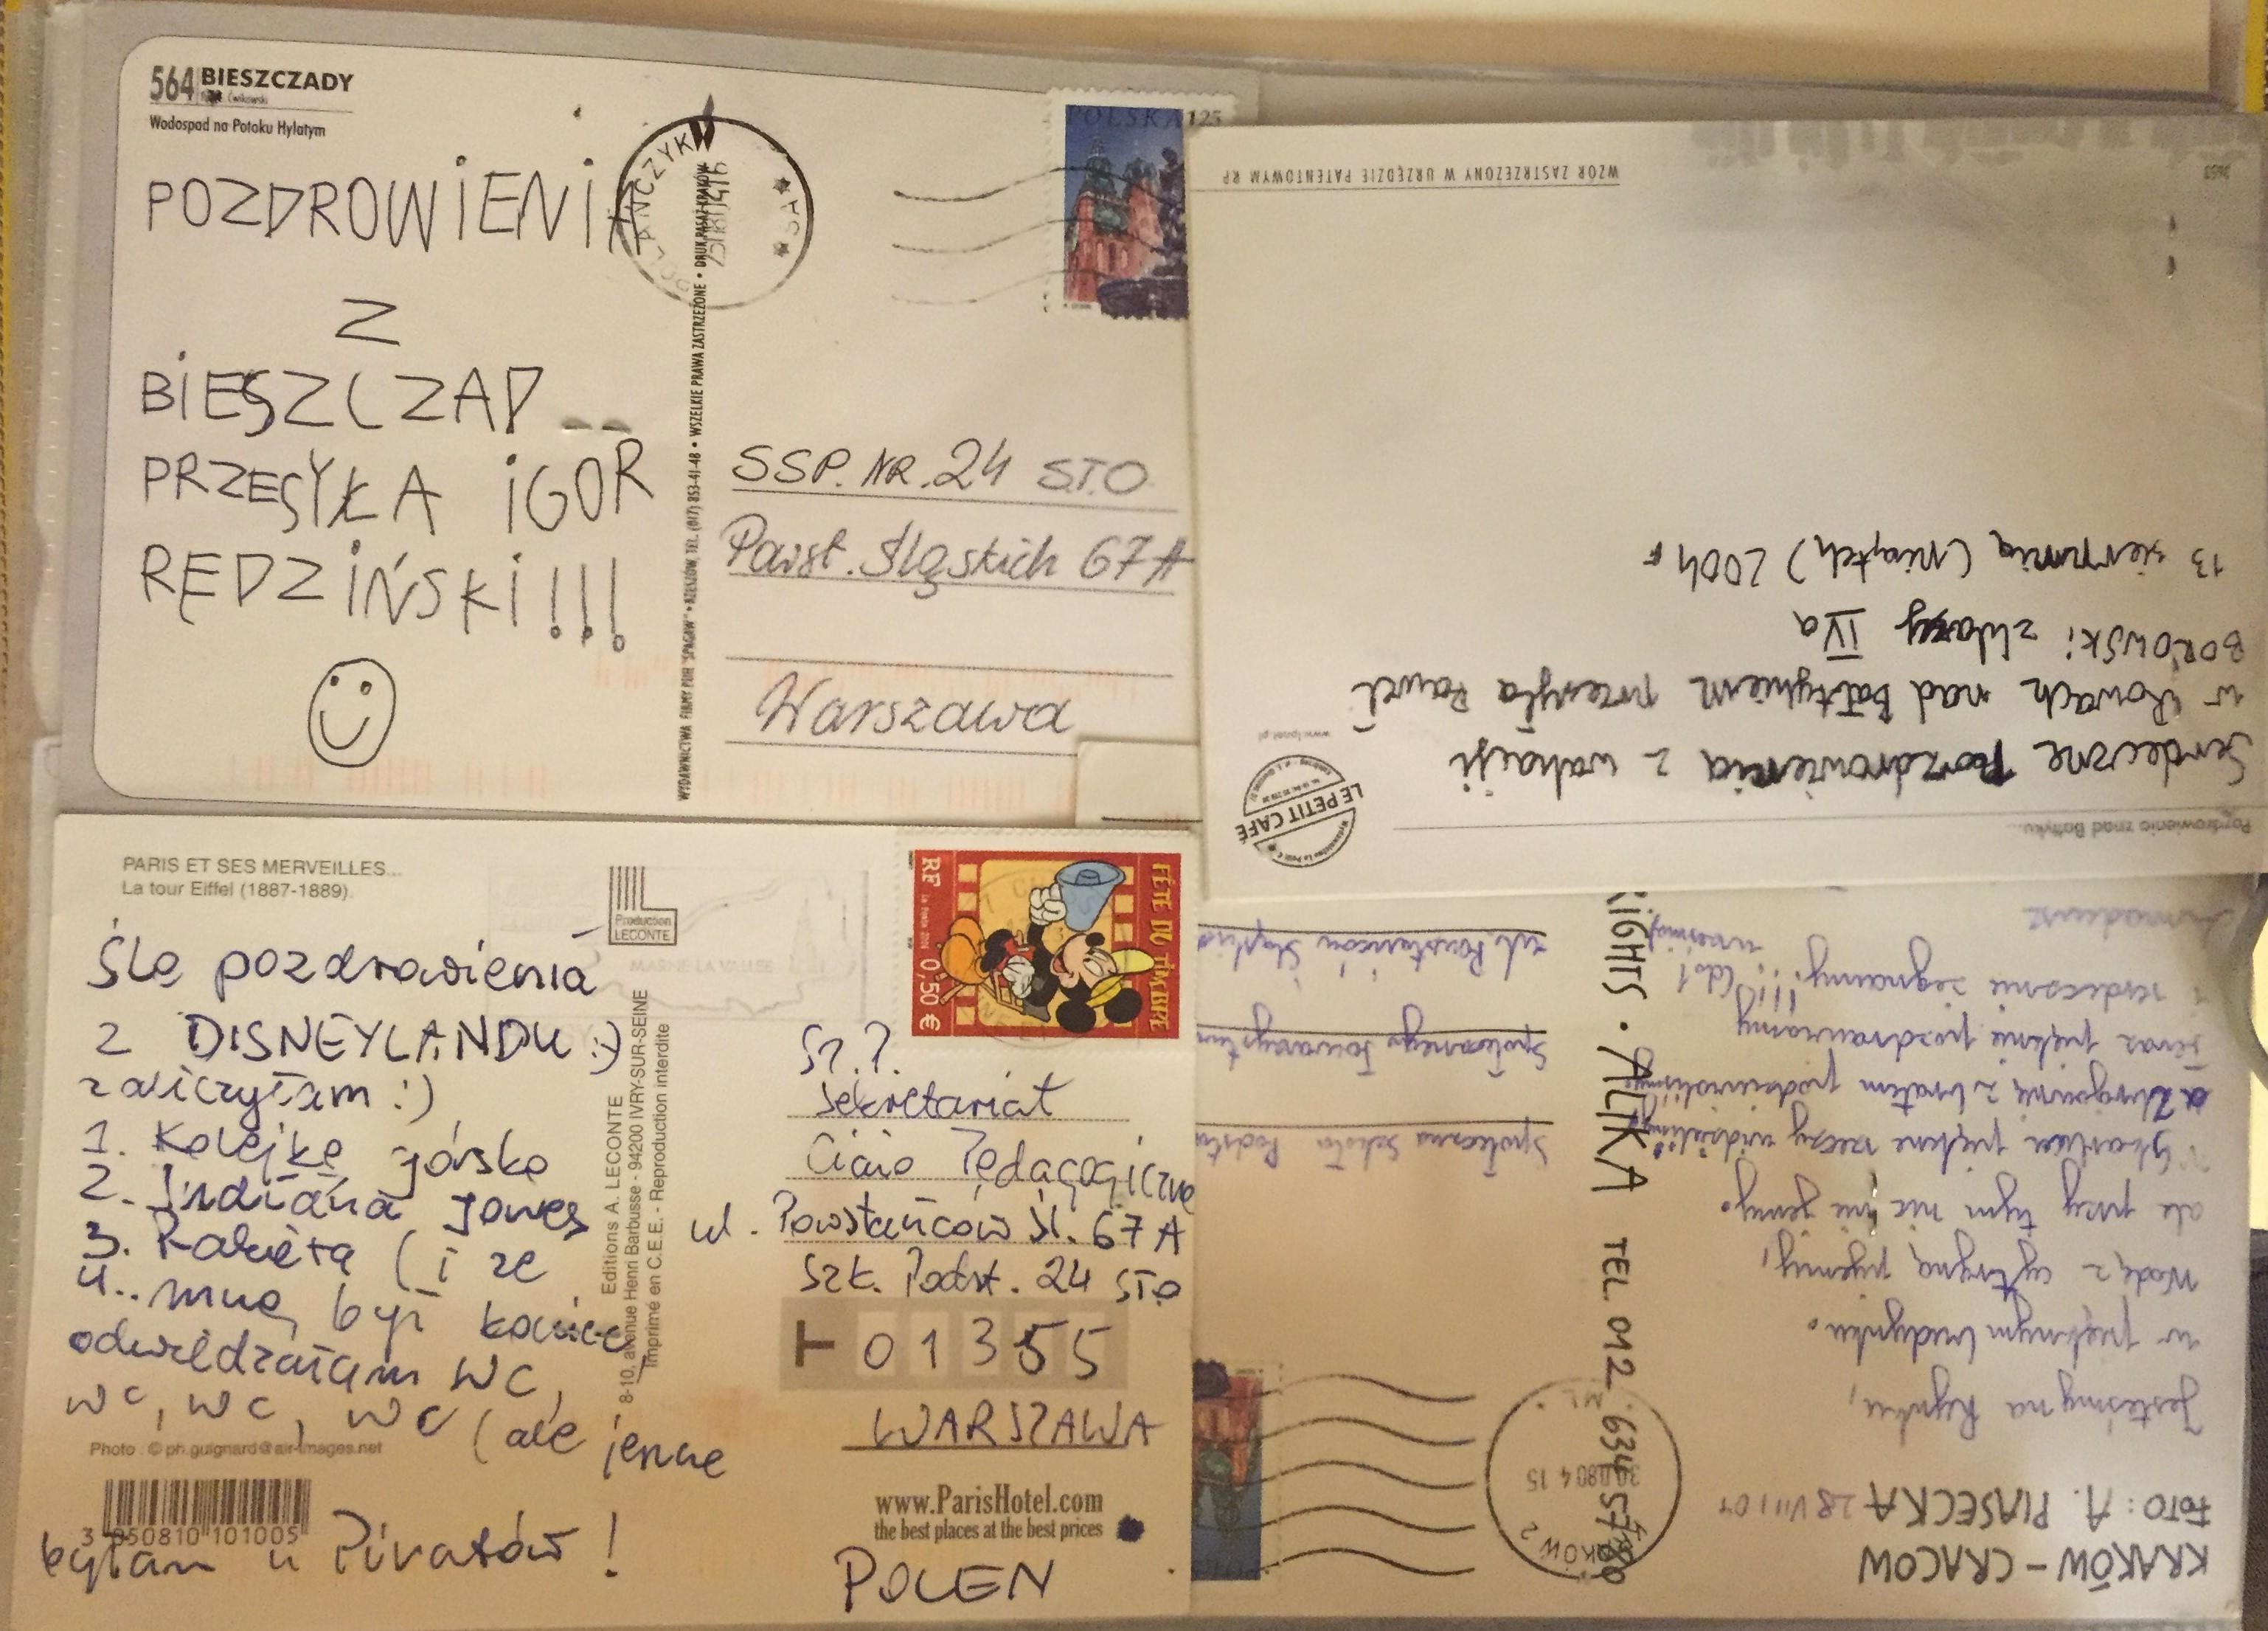 564 BIESZCZADY
Wodospad na Potoku Hylatym
POZDROWIENIA
Z
BIESZCZAD
PRZESYŁA IGOR
RĘDZIŃSKI!!!
WYDAWNICTWA FIRMY PUH "SPAGAW" • RZESZÓW, TEL. (017) 853-41-48 • WSZELKIE PRAWA ZASTRZEŻONE • DRUK PASAŻ KRAKÓW
POLAŃCZYK
POLSKA 125
SSP. NR. 24 STO
Powst. Śląskich 67A
Warszawa
3653
WZÓR ZASTRZEŻONY W URZĘDZIE PATENTOWYM RP
Pozdrowienia znad Bałtyku...
LE PETIT CAFE
Serdeczne Pozdrowienia z wakacji
w Rowach nad Bałtykiem przesyła Paweł
BOROWSKI z klasy IVa
13 sierpnia (piątek) 2004 r
PARIS ET SES MERVEILLES...
La tour Eiffel (1887-1889).
Śle pozdrowienia
z DISNEYLANDU :)
zaliczyłam :)
1. Kolejkę górską
2. Indiana Jones
3. Rakietą (i ze
4.. mną był koniec
odwiedzałam WC,
WC, WC, WC (ale jeszcze
byłam u Piratów!
Photo : © ph.guignard@air-images.net
3 050810 101005
Production
LECONTE
MARNE LA VALLEE
Editions A. LECONTE
8-10, avenue Henri Barbusse - 94200 IVRY-SUR-SEINE
Imprimé en C.E.E. - Reproduction interdite
FÊTE DU TIMBRE
RF La Poste 2004 0,50 €
Sz.?
Sekretariat
Ciało Pedagogiczne
ul. Powstańców Śl. 67A
Szk. Podst. 24 STO
T 01355
WARSZAWA
www.ParisHotel.com
the best places at the best prices
POLEN
KRAKÓW - CRACOW
FOTO: A. PIASECKA 28 VIII 04
Jesteśmy na Rynku,
w pięknym budynku.
Wodę z cytryną pijemy,
ale przy tym nic nie jemy.
piękne rzeczy widzieliśmy
z bratem podziwialiśmy
Teraz pięknie pozdrawiamy
i serdecznie żegnamy!!!
RIGHTS • ALIKA TEL. 012 634 57 80
Społeczna Szkoła Podsta
Społecznego Towarzystwa
ul. Powstańców Śląskich